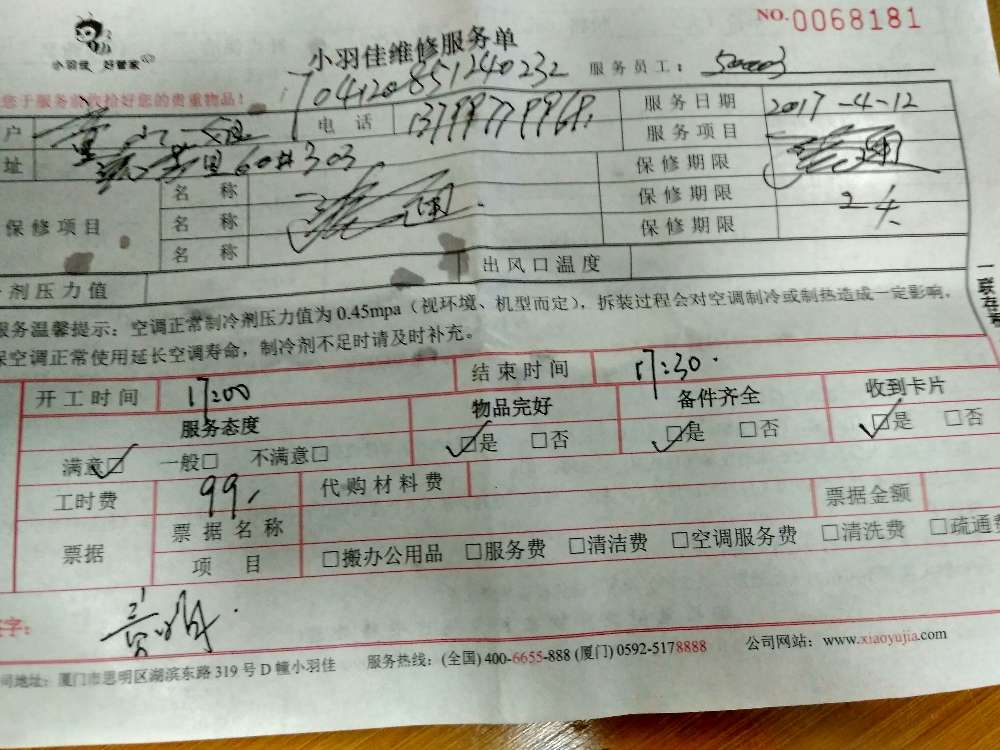 NO.0068181
小羽佳 好管家
小羽佳维修服务单
704120851240232
服务员工:
您于服务前收拾好您的贵重物品!
户 电话 服务日期 2017-4-12
服务项目
址 里60#303 保修期限
保修项目 名称 保修期限 2年
名称 保修期限
名称
剂压力值 出风口温度
服务温馨提示:空调正常制冷剂压力值为0.45mpa(视环境、机型而定),拆装过程会对空调制冷或制热造成一定影响,
保空调正常使用延长空调寿命,制冷剂不足时请及时补充。
一联存
开工时间 17:00 结束时间 17:30.
服务态度 物品完好 备件齐全 收到卡片
满意□ 一般□ 不满意□ □是 □否 □是 □否 □是 □否
工时费 99. 代购材料费
票据 票据名称 票据金额
项目 □搬办公用品 □服务费 □清洁费 □空调服务费 □清洗费 □疏通费
签字:
司地址:厦门市思明区湖滨东路319号D幢小羽佳 服务热线:(全国)400-6655-888 (厦门) 0592-5178888 公司网站:www.xiaoyujia.com